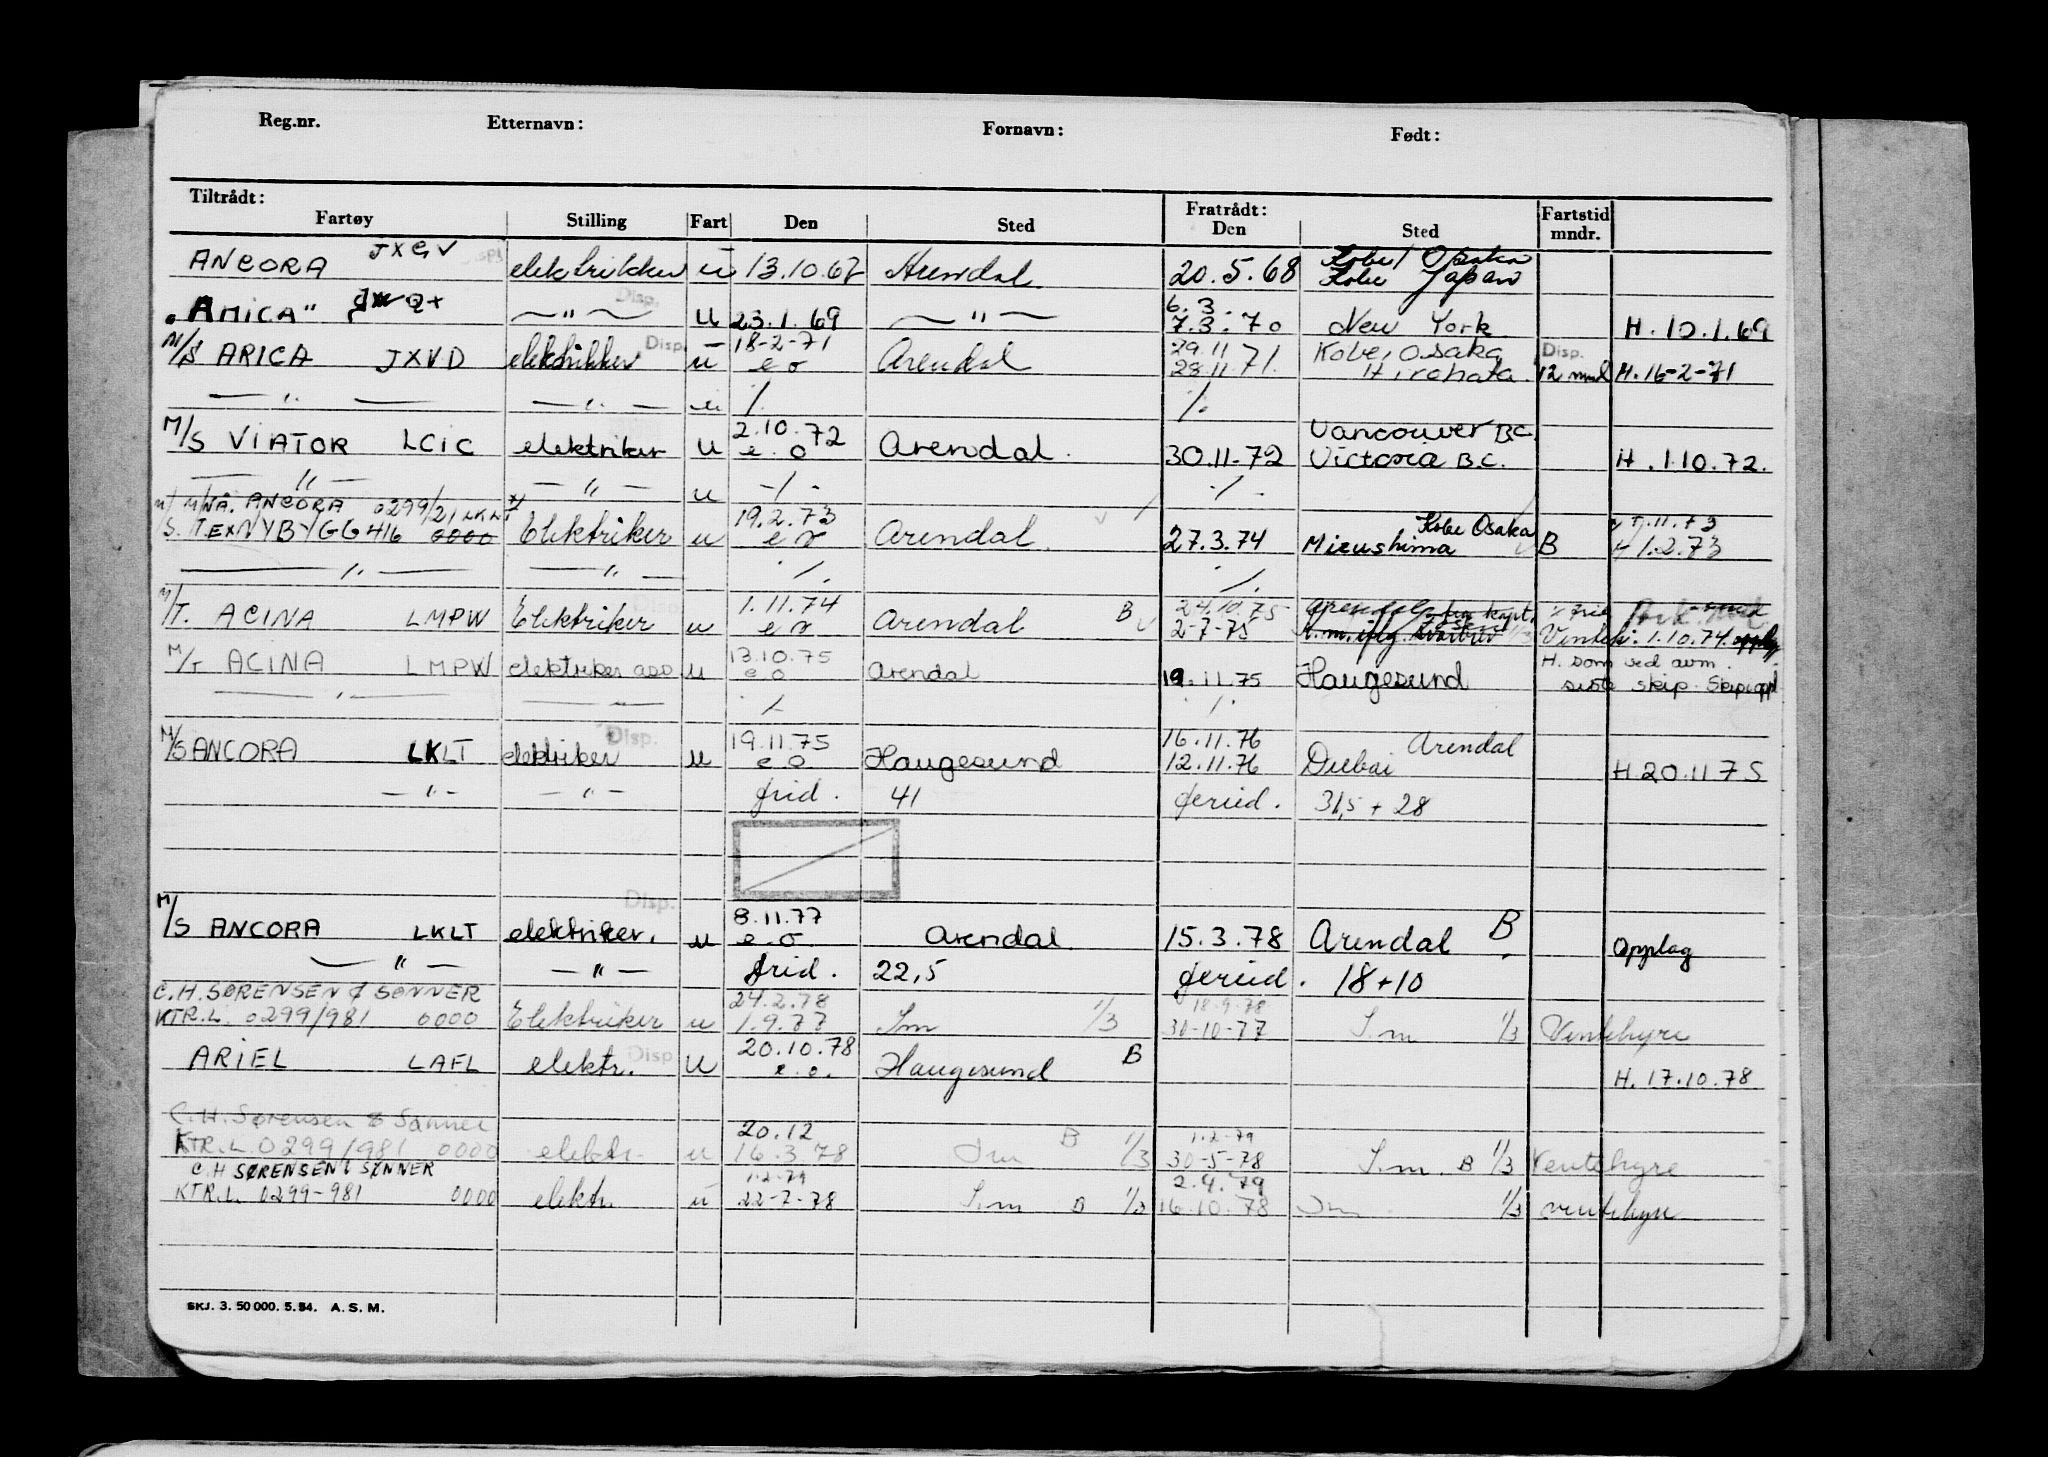 Reg.nr. Etternavn: Fornavn: Født:
Tiltrådt: Fratrådt: Fartstid
Fartøy Stilling Fart Den Sted Den Sted mndr.
ANCORA JXGV elektrikker u 13.10.67 Arendal 20.5.68 Kobe/Osaka
Kobe Japan
Disp.
"AMICA" — " — u 23.1.69 — " — 6.3.
7.3.70 New York H. 10.1.69
M/S ARICA JXVD elektrikker Disp. u 18-2-71
e o Arendal 29.11
28.11.71. Kobe, Osaka
Hirohata Disp.
12 mnd H. 16-2-71
— " — — " — u ./. ./.
M/S VIATOR LCIC elektriker u 2.10.72
e.o Arendal. 30.11.72 Vancouver B.C.
Victoria B.C. H. 1.10.72.
— " — — " — u ./. ./.
ANCORA 0299/21 LKLT
S. TEXNYBYGG 416 0000 Elektriker u 19.2.73
e o Arendal. 27.3.74 Kobe Osaka
Mizushima B 11.73
H 1.2.73
— " — — " — ./. ./.
M/T. ACINA LMPW Elektriker Disp. u 1.11.74
e o Arendal B 24.10.75
2-7-75 Arendal 1/3 Venteh: 1.10.74.
M/T ACINA LMPW elektriker ass u 13.10.75
e o Arendal 19.11.75 Haugesund H. som ved avm.
siste skip. Skip oppl
— " — — " — ./. ./.
M/S ANCORA LKLT elektriker Disp. u 19.11.75
e o Haugesund 16.11.76
12.11.76 Arendal
Dubai H. 20.11 75
— " — — " — frid. 41 feried. 31,5 + 28
M/S ANCORA LKLT elektriker. Disp. u 8.11.77
e.o. Arendal 15.3.78 Arendal B Opplag
— " — — " — frid. 22,5 feried. 18+10
C.H. SØRENSEN & SØNNER
KTR.L. 0299/981 0000 Elektriker u 24.2.78
1.9.77 I.m 1/3 18-9-78
30-10-77 I.m 1/3 Ventehyre
ARIEL LAFL elektr. Disp u 20.10.78
e.o. Haugesund B H. 17.10.78
C.H. Sørensen & Sønner
KTR.L. 0299/981 0000 elektr. u 20.12
16.3.78 I.m B 1/3 1-2-79
30-5-78 I.m. B 1/3 Ventehyre
C.H SØRENSEN & SØNNER
KTR.L. 0299-981 0000 elektr. u 1.2.79
22-7-78 I.m B 1/3 2.4.79
16.10.78 I.m 1/3 ventehyre
SKJ. 3. 50 000. 5. 54. A. S. M.